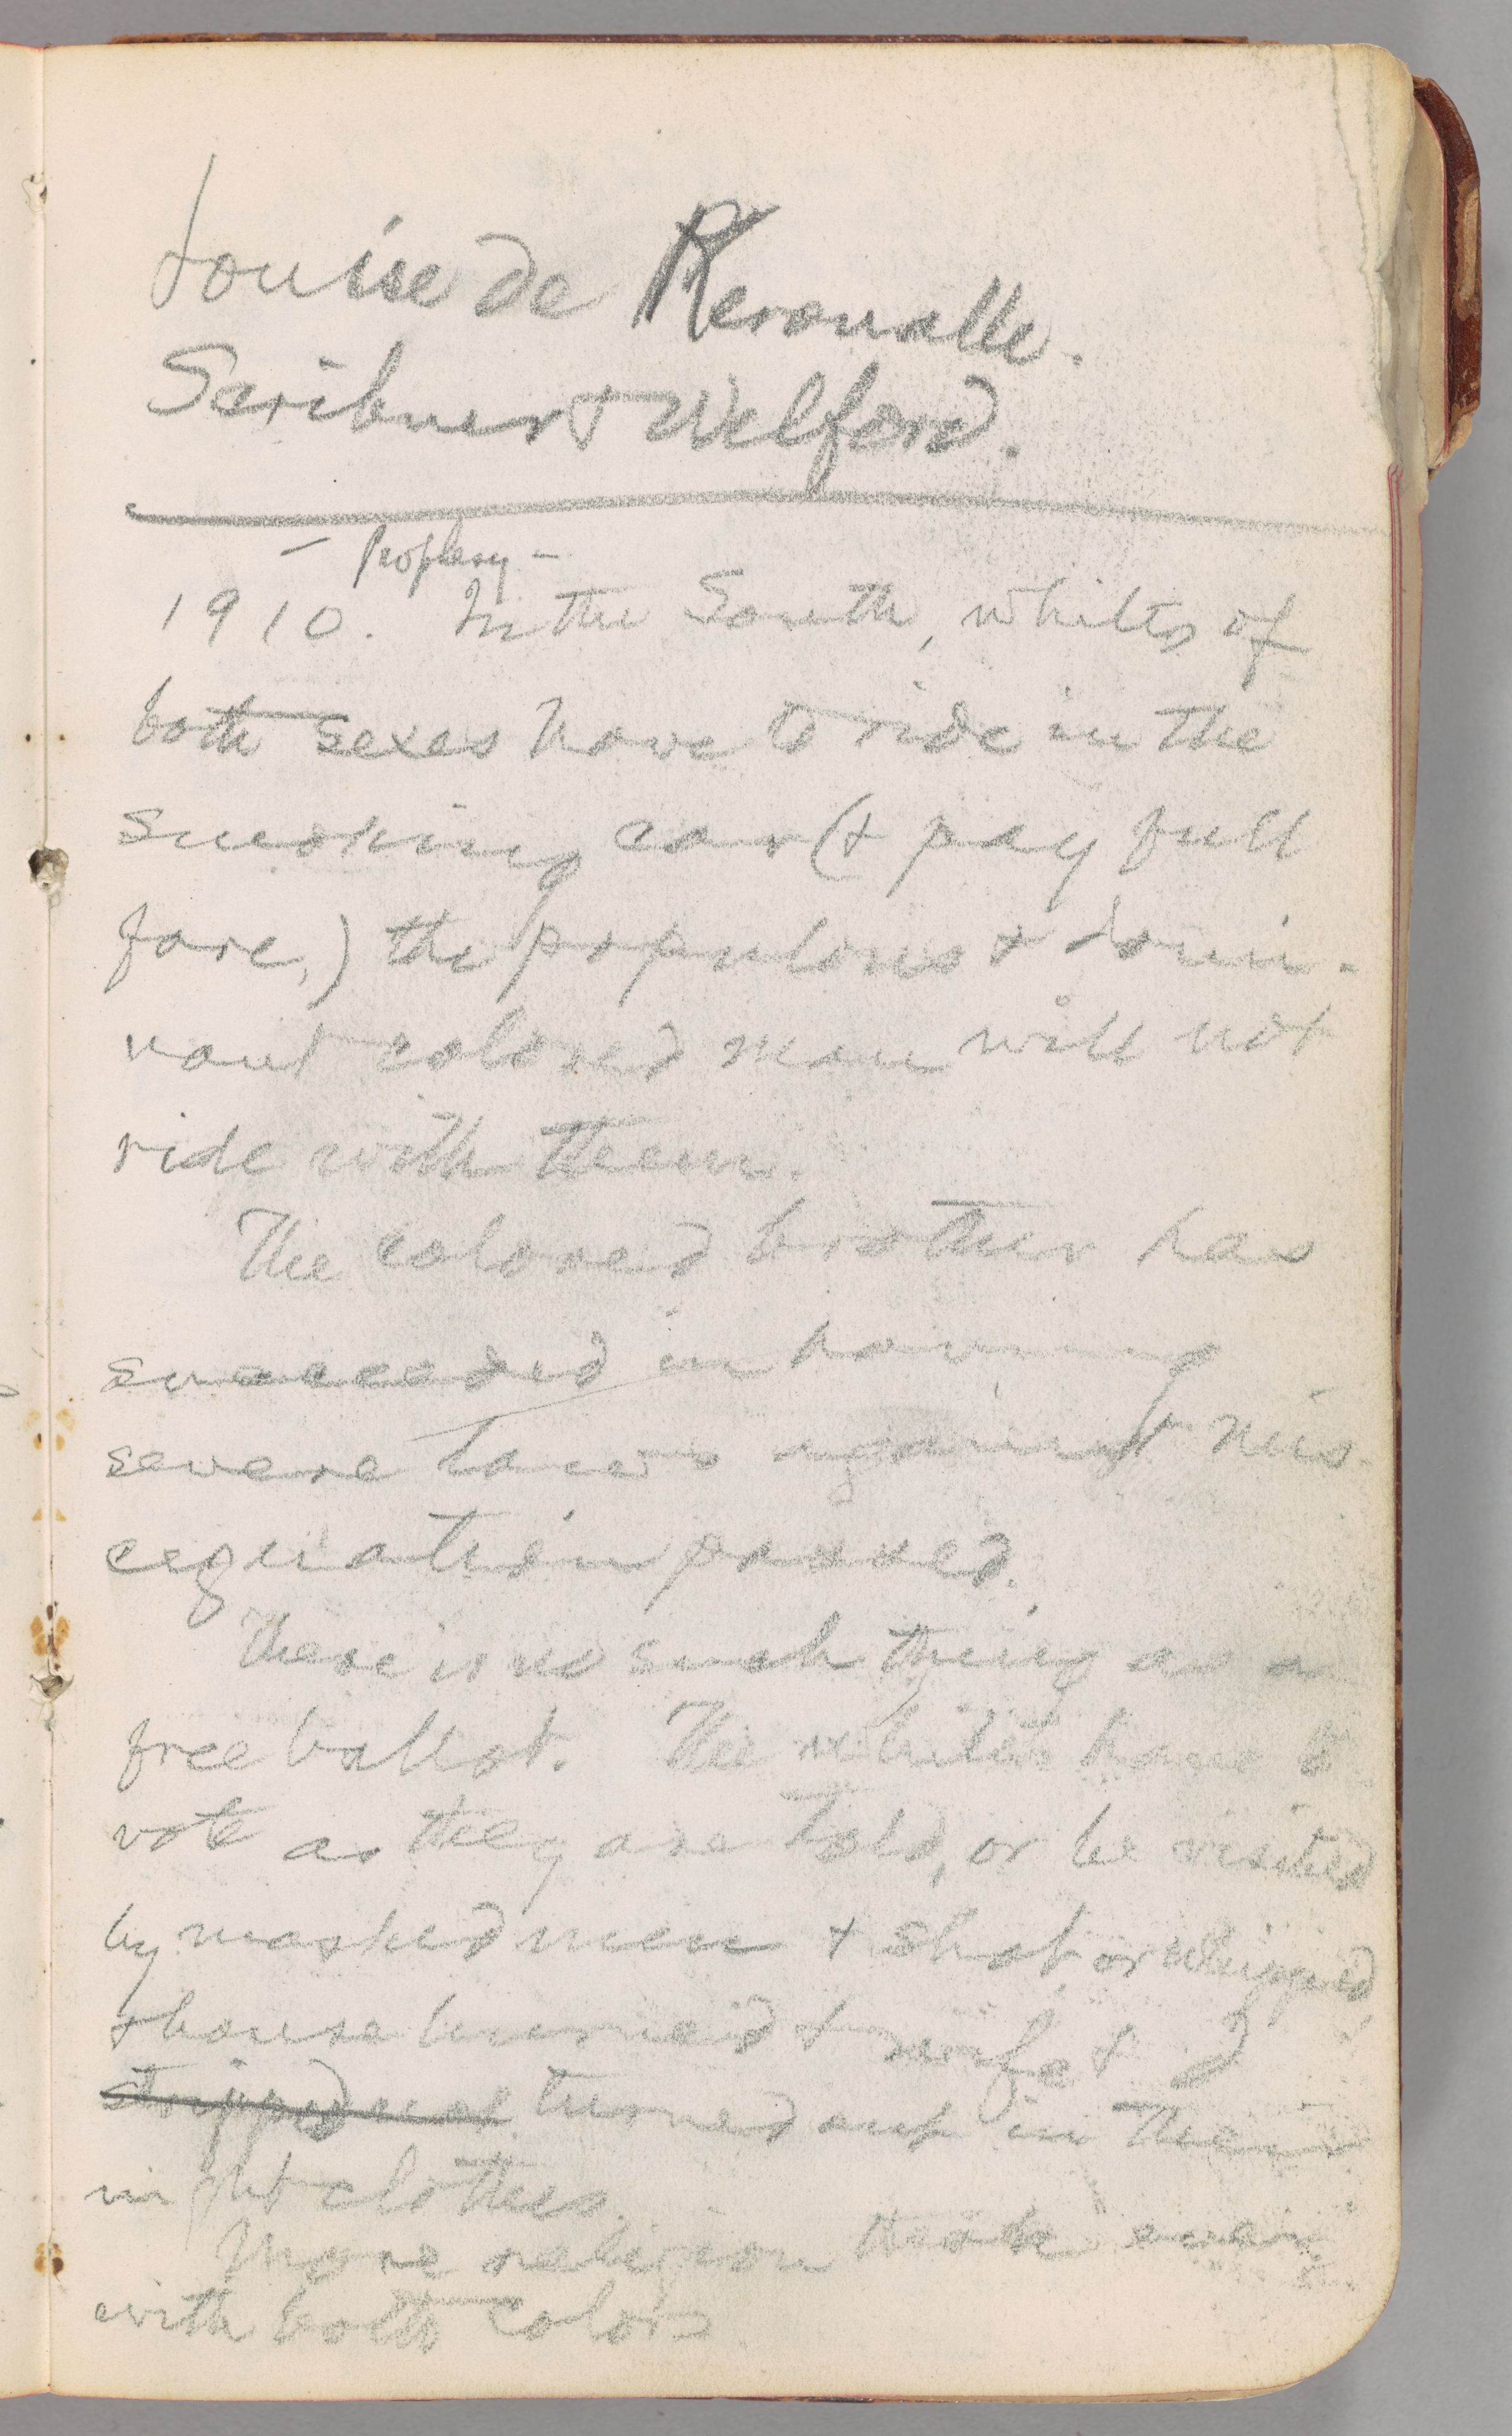 Louise de Keroualle.
Scribner & Welford.
— Prophesy —
1910. In the South, whites of
both sexes have to ride in the
smoking car (& pay full
fare,) the populous & domi-
nant colored man will not
ride with them.
The colored brother has
succeeded in having
severe laws against mis-
cegnation passed.
There is no such thing as a
free ballot. The whites have to
vote as they are told, or be visited
by masked men & shot, or whipped,
& house burned & wife &
stripped turned out in their
night clothes.
More religion than ever,
with both colors